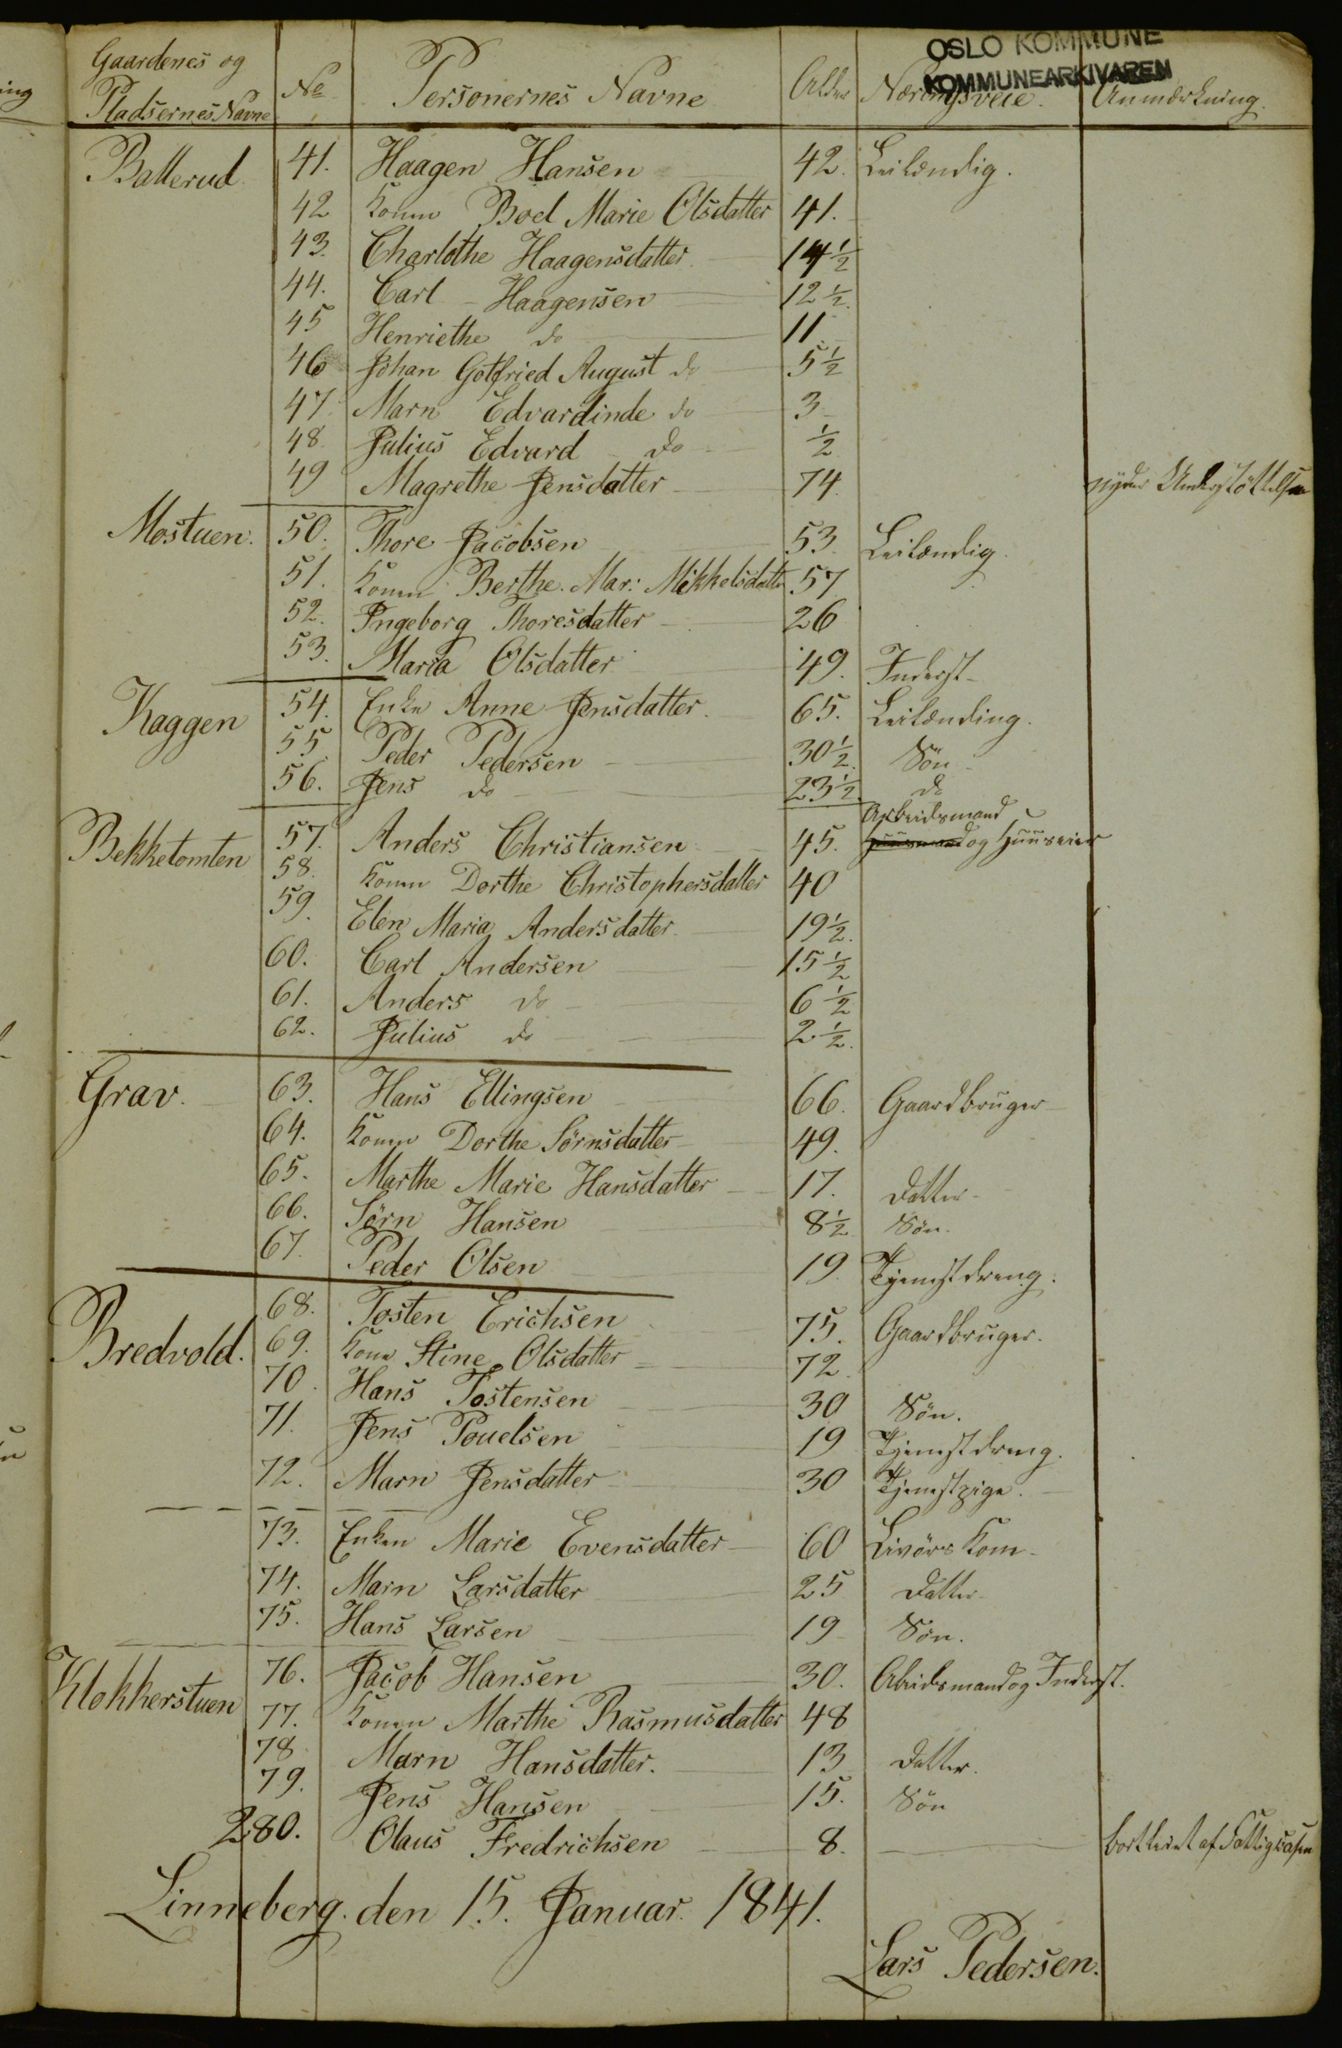 OSLO KOMMUNE
KOMMUNEARKIVAREN
Gaardenes og
Pladsernes Navne
No
Personernes Navne
Alder
Næringsveie.
Anmærkning.
Batterud 41. Haagen Hansen 42. Leilændig.
42 Konen Boel Marie Olsdatter 41.
43. Charlothe Haagensdatter 14 1/2
44. Carl Haagensen 12 1/2
45 Henriethe do 11
46 Johan Gotfried August do 5 1/2
47 Marn Edvardinde do 3
48 Julius Edvard do 1/2
49 Magrethe Jensdatter 74 nyder Understøttelse
Mostuen. 50. Thore Jacobsen 53. Leilændig.
51. Konen Berthe Mar: Mikkelsdatter 57
52. Ingeborg Thoresdatter 26
53. Maria Olsdatter 49. Inderst
Kaggen 54. Enke Anne Jensdatter. 65. Leilænding.
55 Peder Pedersen 30 1/2 Søn
56. Jens do 23 1/2 do
Arbeidsmand
Bekketomten 57. Anders Christiansen 45. Huusmand og Huuseier
58. Konen Dorthe Christophersdatter 40
59. Elen Maria Andersdatter 19 1/2
60. Carl Andersen 15 1/2
61. Anders do 6 1/2
62. Julius do 2 1/2
Grav. 63. Hans Ellingsen 66. Gaardbruger
64. Konen Dorthe Sørnsdatter 49.
65. Marthe Marie Hansdatter 17. Datter
66. Sørn Hansen 8 1/2 Søn.
67. Peder Olsen 19 Tjenestdreng.
Bredvold. 68. Tosten Erichsen 75. Gaardbruger.
69. Kone Stine Olsdatter 72
70 Hans Tostensen 30 Søn.
71. Jens Pouelsen 19 Tjenestdreng.
72. Marn Jensdatter 30 Tjenestpige.
73. Enken Marie Evensdatter 60 Livørs Kone
74. Marn Larsdatter 25 Datter
75. Hans Larsen 19 Søn.
Klokkerstuen 76. Jacob Hansen 30. Abeidsmand og Inderst.
77. Konen Marthe Rasmusdatter 48
78 Marn Hansdatter. 13 Datter.
79. Jens Hansen 15. Søn
280. Olaus Fredrichsen 8. bortleiet af Fattigcasen
Linneberg. den 15. Januar. 1841.
Lars Pedersen.